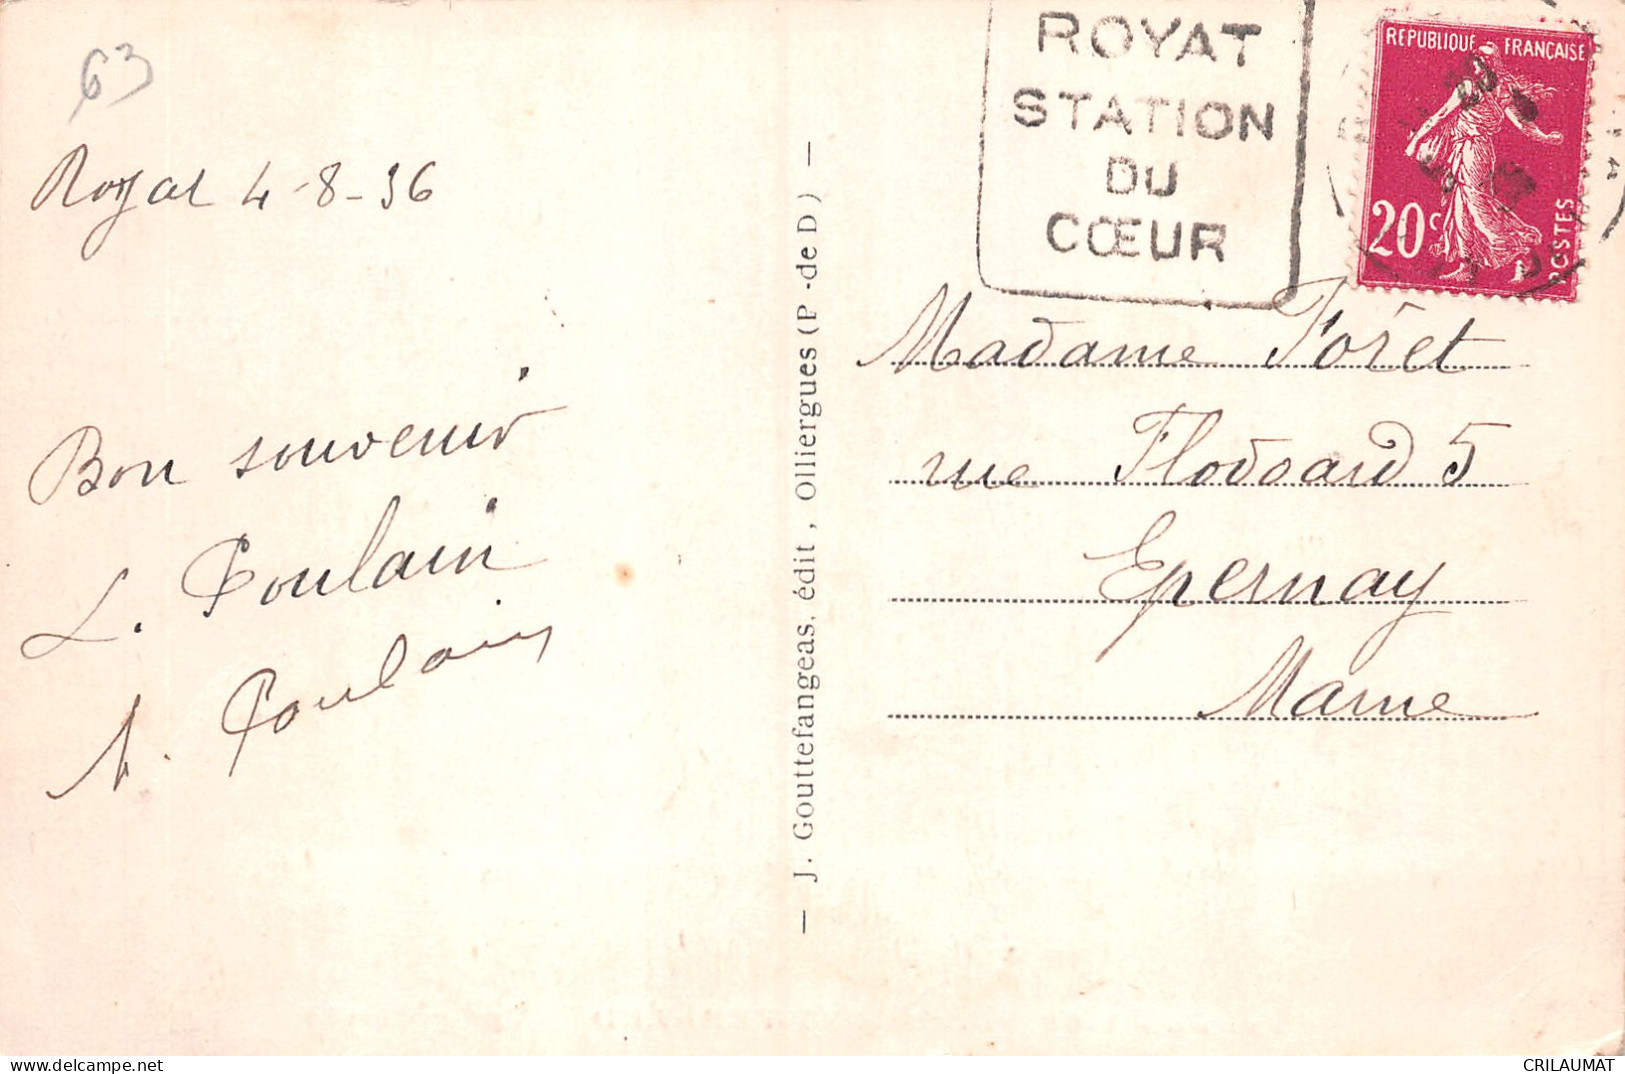 63
Royat 4-8-36
Bon souvenir
L. Poulain
A. Poulain
— J. Gouttefangeas, édit , Olliergues (P -de D) —
ROYAT
STATION
DU
CŒUR
REPUBLIQUE FRANÇAISE
20c
POSTES
Madame Forêt
rue Flodoard 5
Epernay
Marne
CRILAUMAT